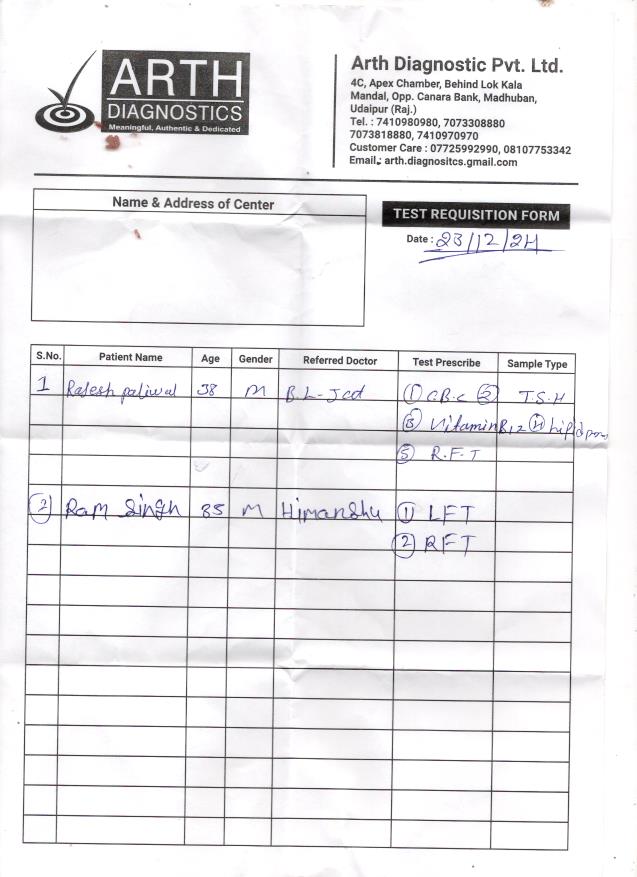 ARTH
DIAGNOSTICS
Meaningful, Authentic & Dedicated
Arth Diagnostic Pvt. Ltd.
4C, Apex Chamber, Behind Lok Kala
Mandal, Opp. Canara Bank, Madhuban,
Udaipur (Raj.)
Tel. : 7410980980, 7073308880
7073818880, 7410970970
Customer Care : 07725992990, 08107753342
Email : arth.diagnositcs.gmail.com
Name & Address of Center
TEST REQUISITION FORM
Date : 23/12/24
S.No. Patient Name Age Gender Referred Doctor Test Prescribe Sample Type
1 Rajesh paliwal 38 M B.L- ① C.B.C ② T.S.H
③ VitaminB12 ④ Lipid
⑤ R.F.T
② Ram Singh 35 M Himanshu ① LFT
② RFT